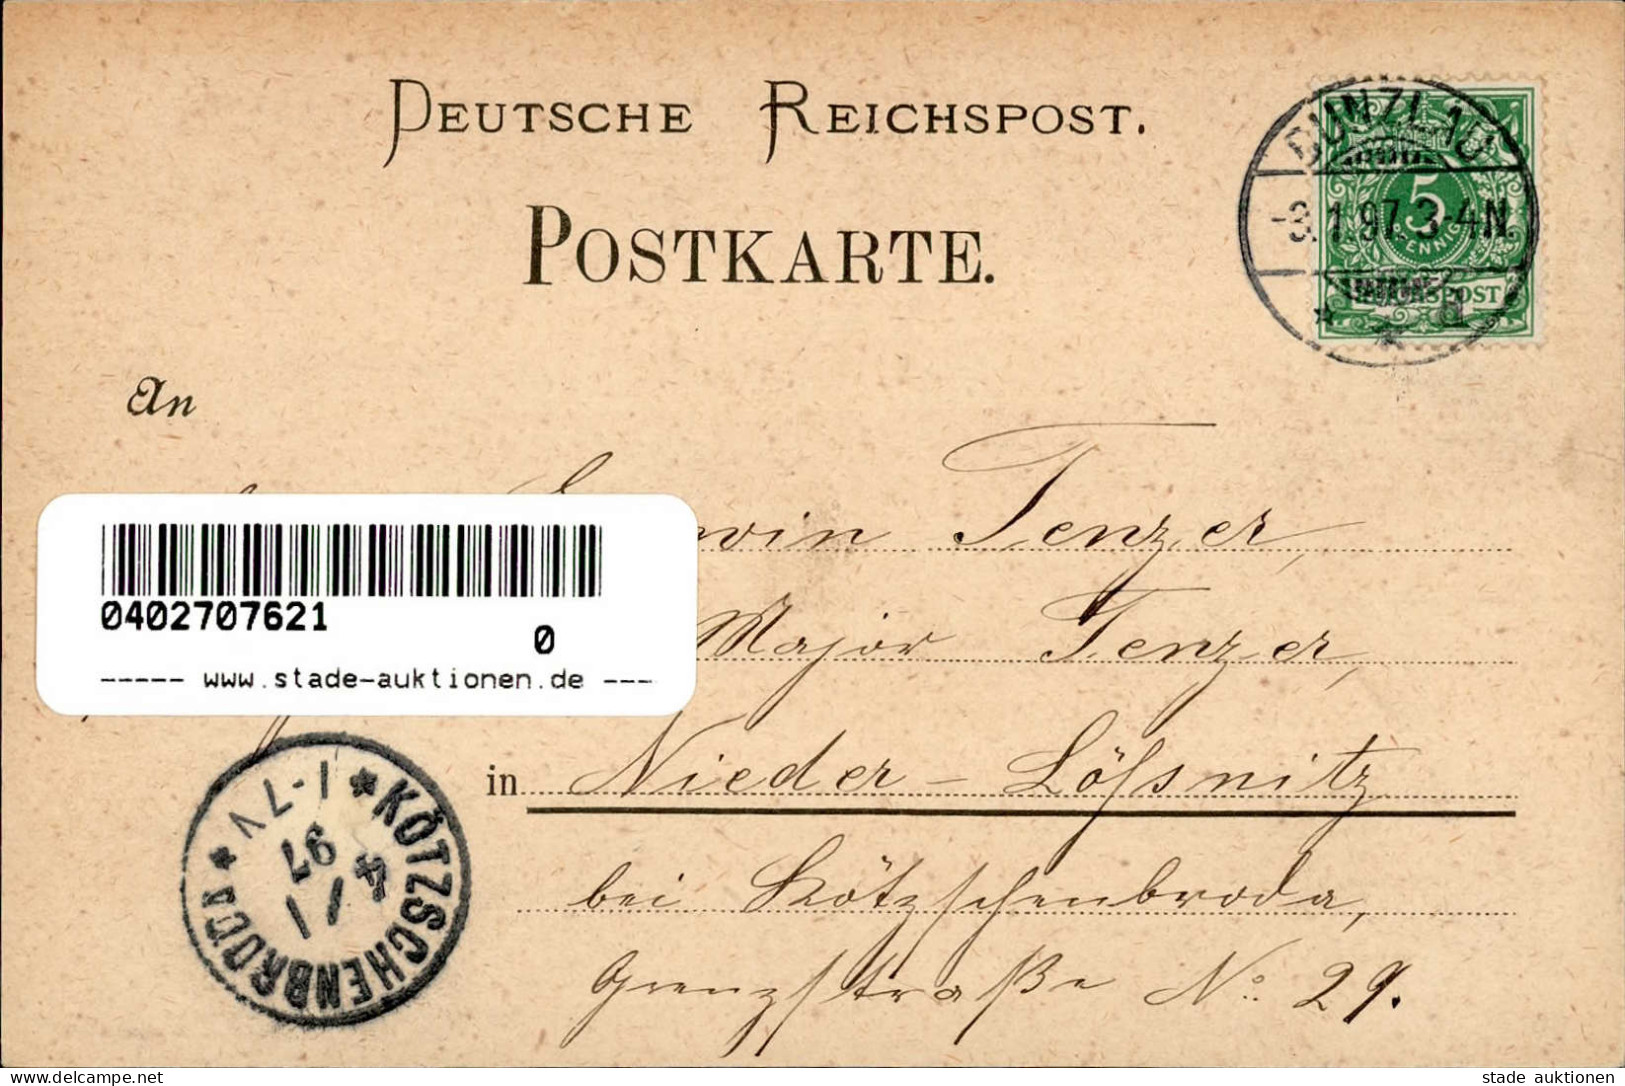 DEUTSCHE REICHSPOST.
POSTKARTE.
BUNZLAU
-3.1.97.3-4N.
* * a
5
PFENNIG
REICHSPOST
An
Tenzer,
Major Tenzer,
0402707621
0
----- www.stade-auktionen.de ----
in Nieder-Lößnitz
bei Kötzschenbroda,
Grenzstraße No: 29.
* KÖTZSCHENBRODA *
4/1
97
1-7V
delcampe.net
stade auktionen